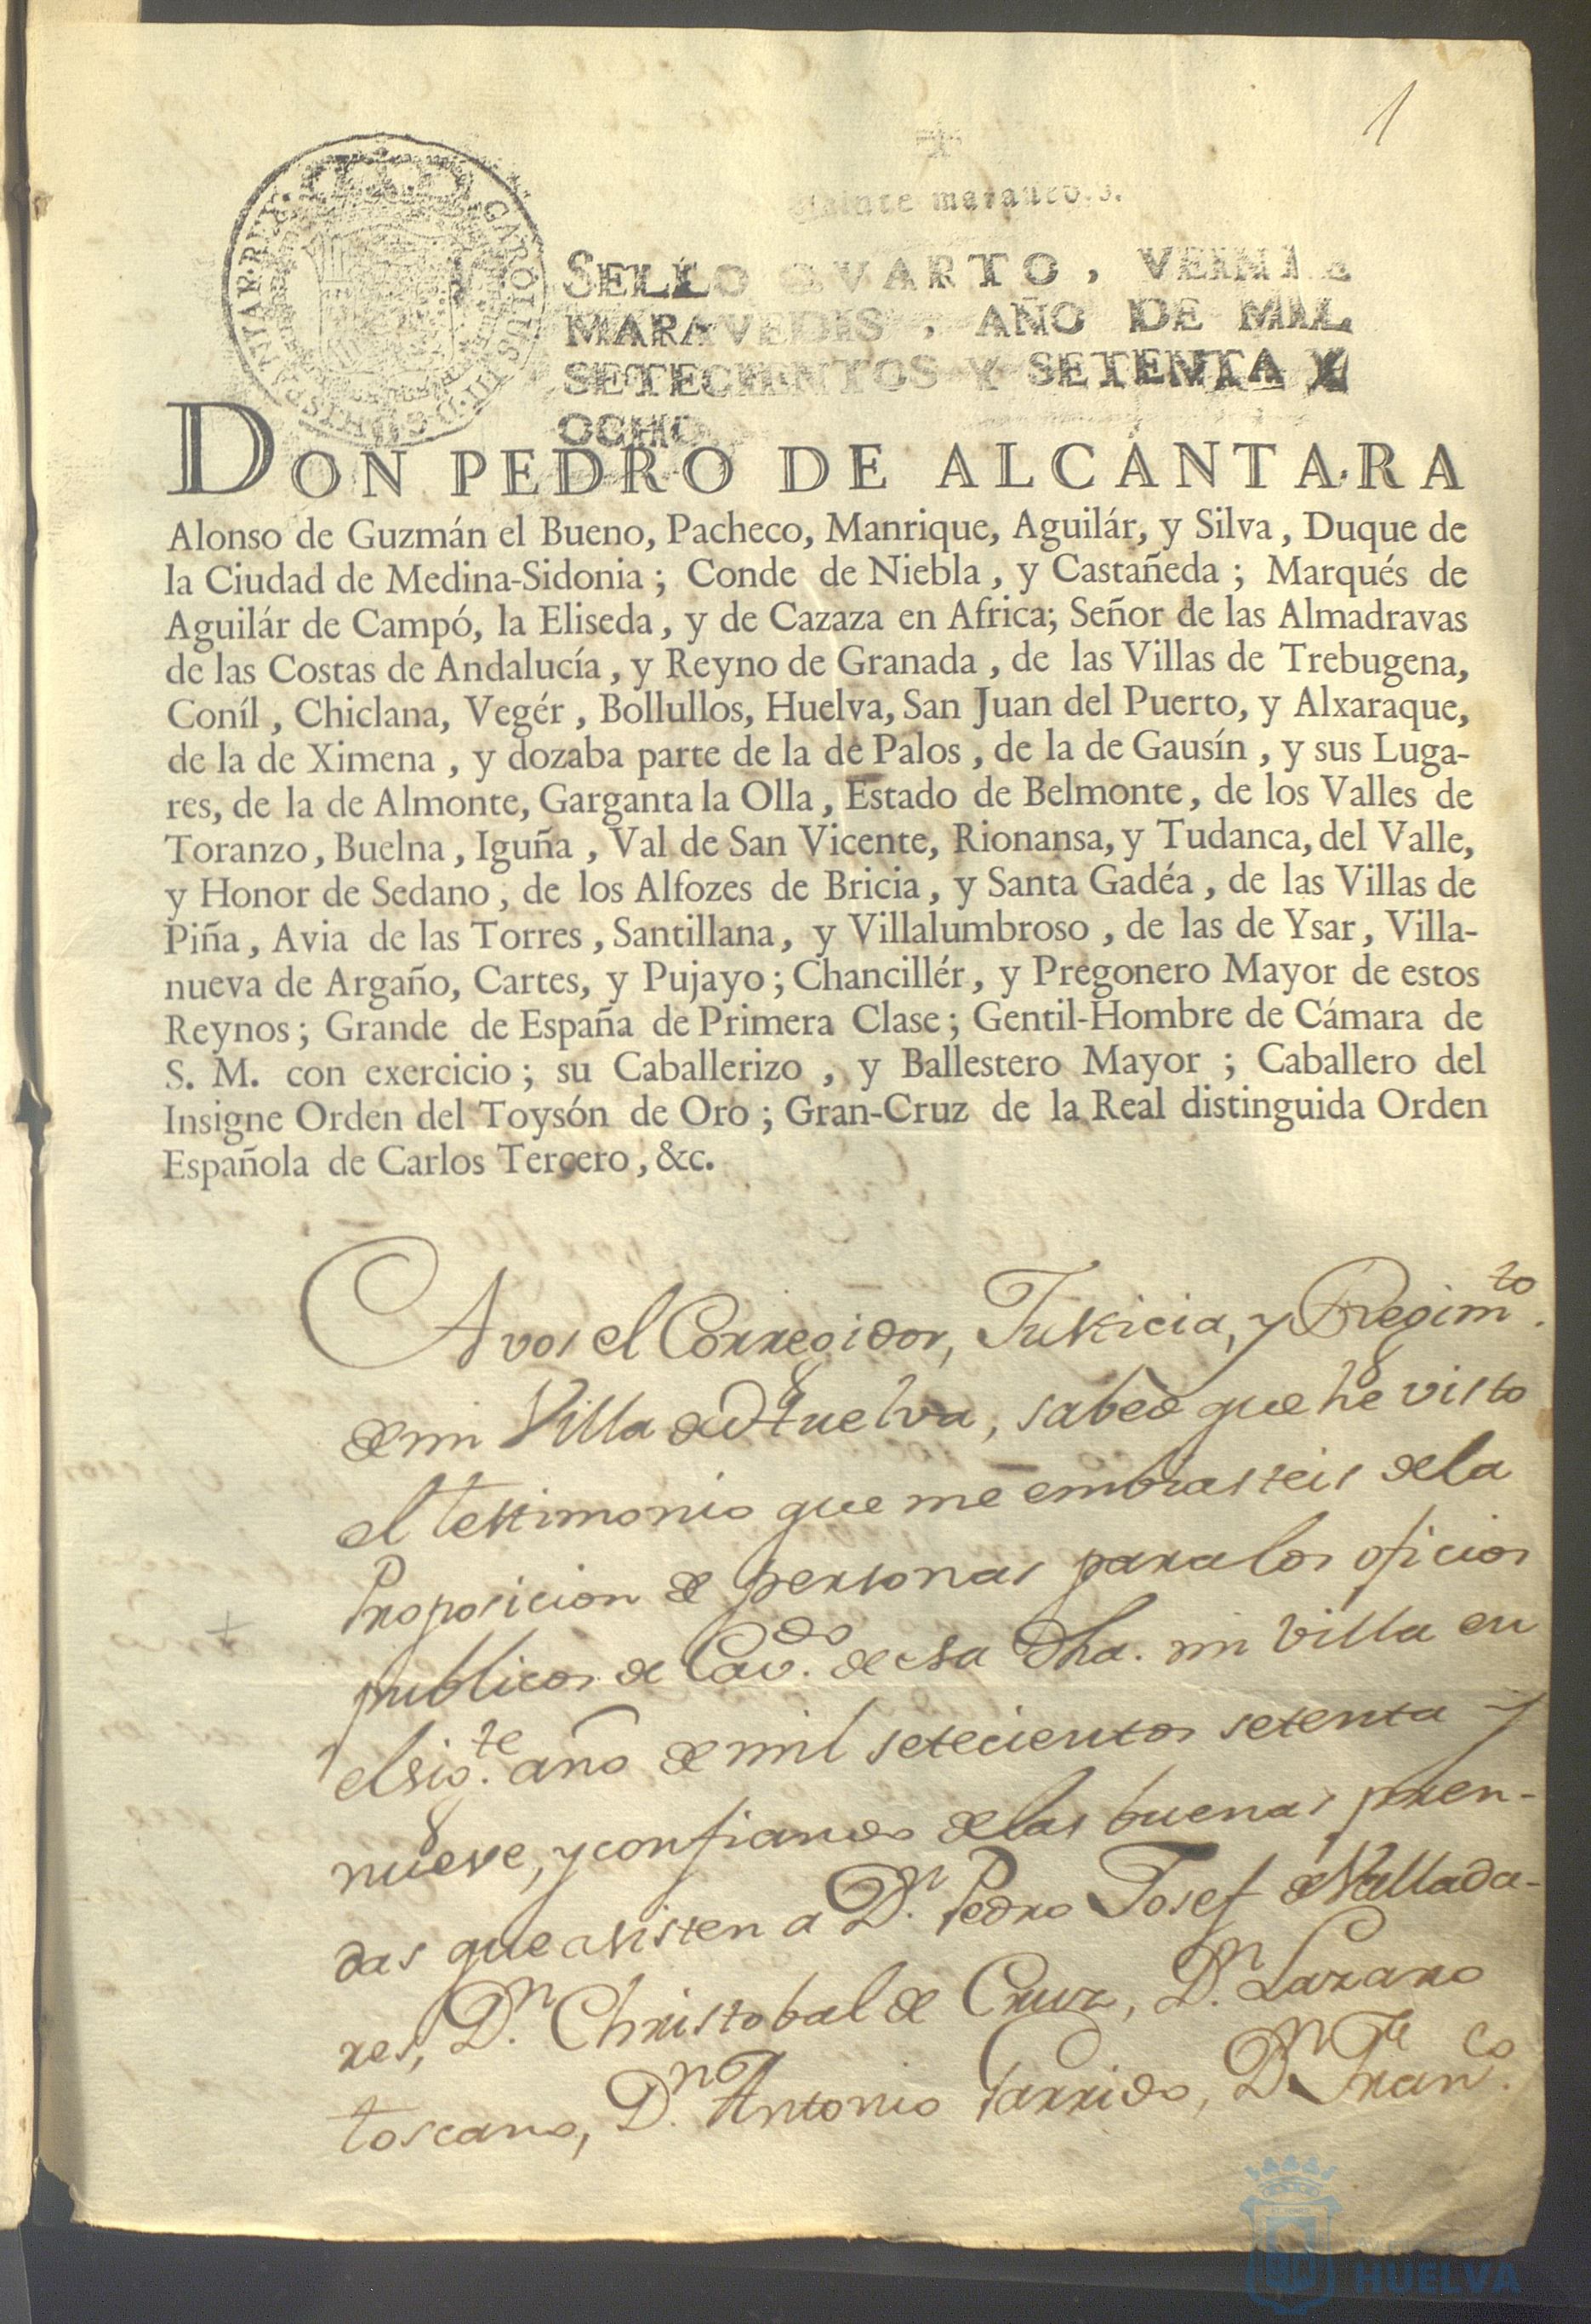 1
Veinte maravedis.
SELLO QVARTO, VEINTE
MARAVEDIS, AÑO DE MIL
SETECIENTOS Y SETENTA Y
OCHO.
CAROLUS III D. G. HISPANIAR. REX
DON PEDRO DE ALCÁNTARA
Alonso de Guzmán el Bueno, Pacheco, Manrique, Aguilár, y Silva, Duque de
la Ciudad de Medina-Sidonia; Conde de Niebla, y Castañeda; Marqués de
Aguilár de Campó, la Eliseda, y de Cazaza en Africa; Señor de las Almadravas
de las Costas de Andalucía, y Reyno de Granada, de las Villas de Trebugena,
Coníl, Chiclana, Vegér, Bollullos, Huelva, San Juan del Puerto, y Alxaraque,
de la de Ximena, y dozaba parte de la de Palos, de la de Gausín, y sus Luga-
res, de la de Almonte, Garganta la Olla, Estado de Belmonte, de los Valles de
Toranzo, Buelna, Iguña, Val de San Vicente, Rionansa, y Tudanca, del Valle,
y Honor de Sedano, de los Alfozes de Bricia, y Santa Gadéa, de las Villas de
Piña, Avia de las Torres, Santillana, y Villalumbroso, de las de Ysar, Villa-
nueva de Argaño, Cartes, y Pujayo; Chancillér, y Pregonero Mayor de estos
Reynos; Grande de España de Primera Clase; Gentil-Hombre de Cámara de
S. M. con exercicio; su Caballerizo, y Ballestero Mayor; Caballero del
Insigne Orden del Toysón de Oro; Gran-Cruz de la Real distinguida Orden
Española de Carlos Tercero, &c.
A vos el Corregidor, Justicia, y Regim.to
de mi Villa de Huelva, sabed que he visto
el testimonio que me embiasteis de la
Proposicion de personas para los oficios
publicos de Cav.do de esa dha. mi Villa en
el sig.te año de mil setecientos setenta y
nueve, y confiando de las buenas pren-
das que asisten a D.n Pedro Josef de Vallada-
res, D.n Christobal de Cruz, D.n Lazaro
toscano, D.n Antonio Garrido, D.n Fran.co
HUELVA